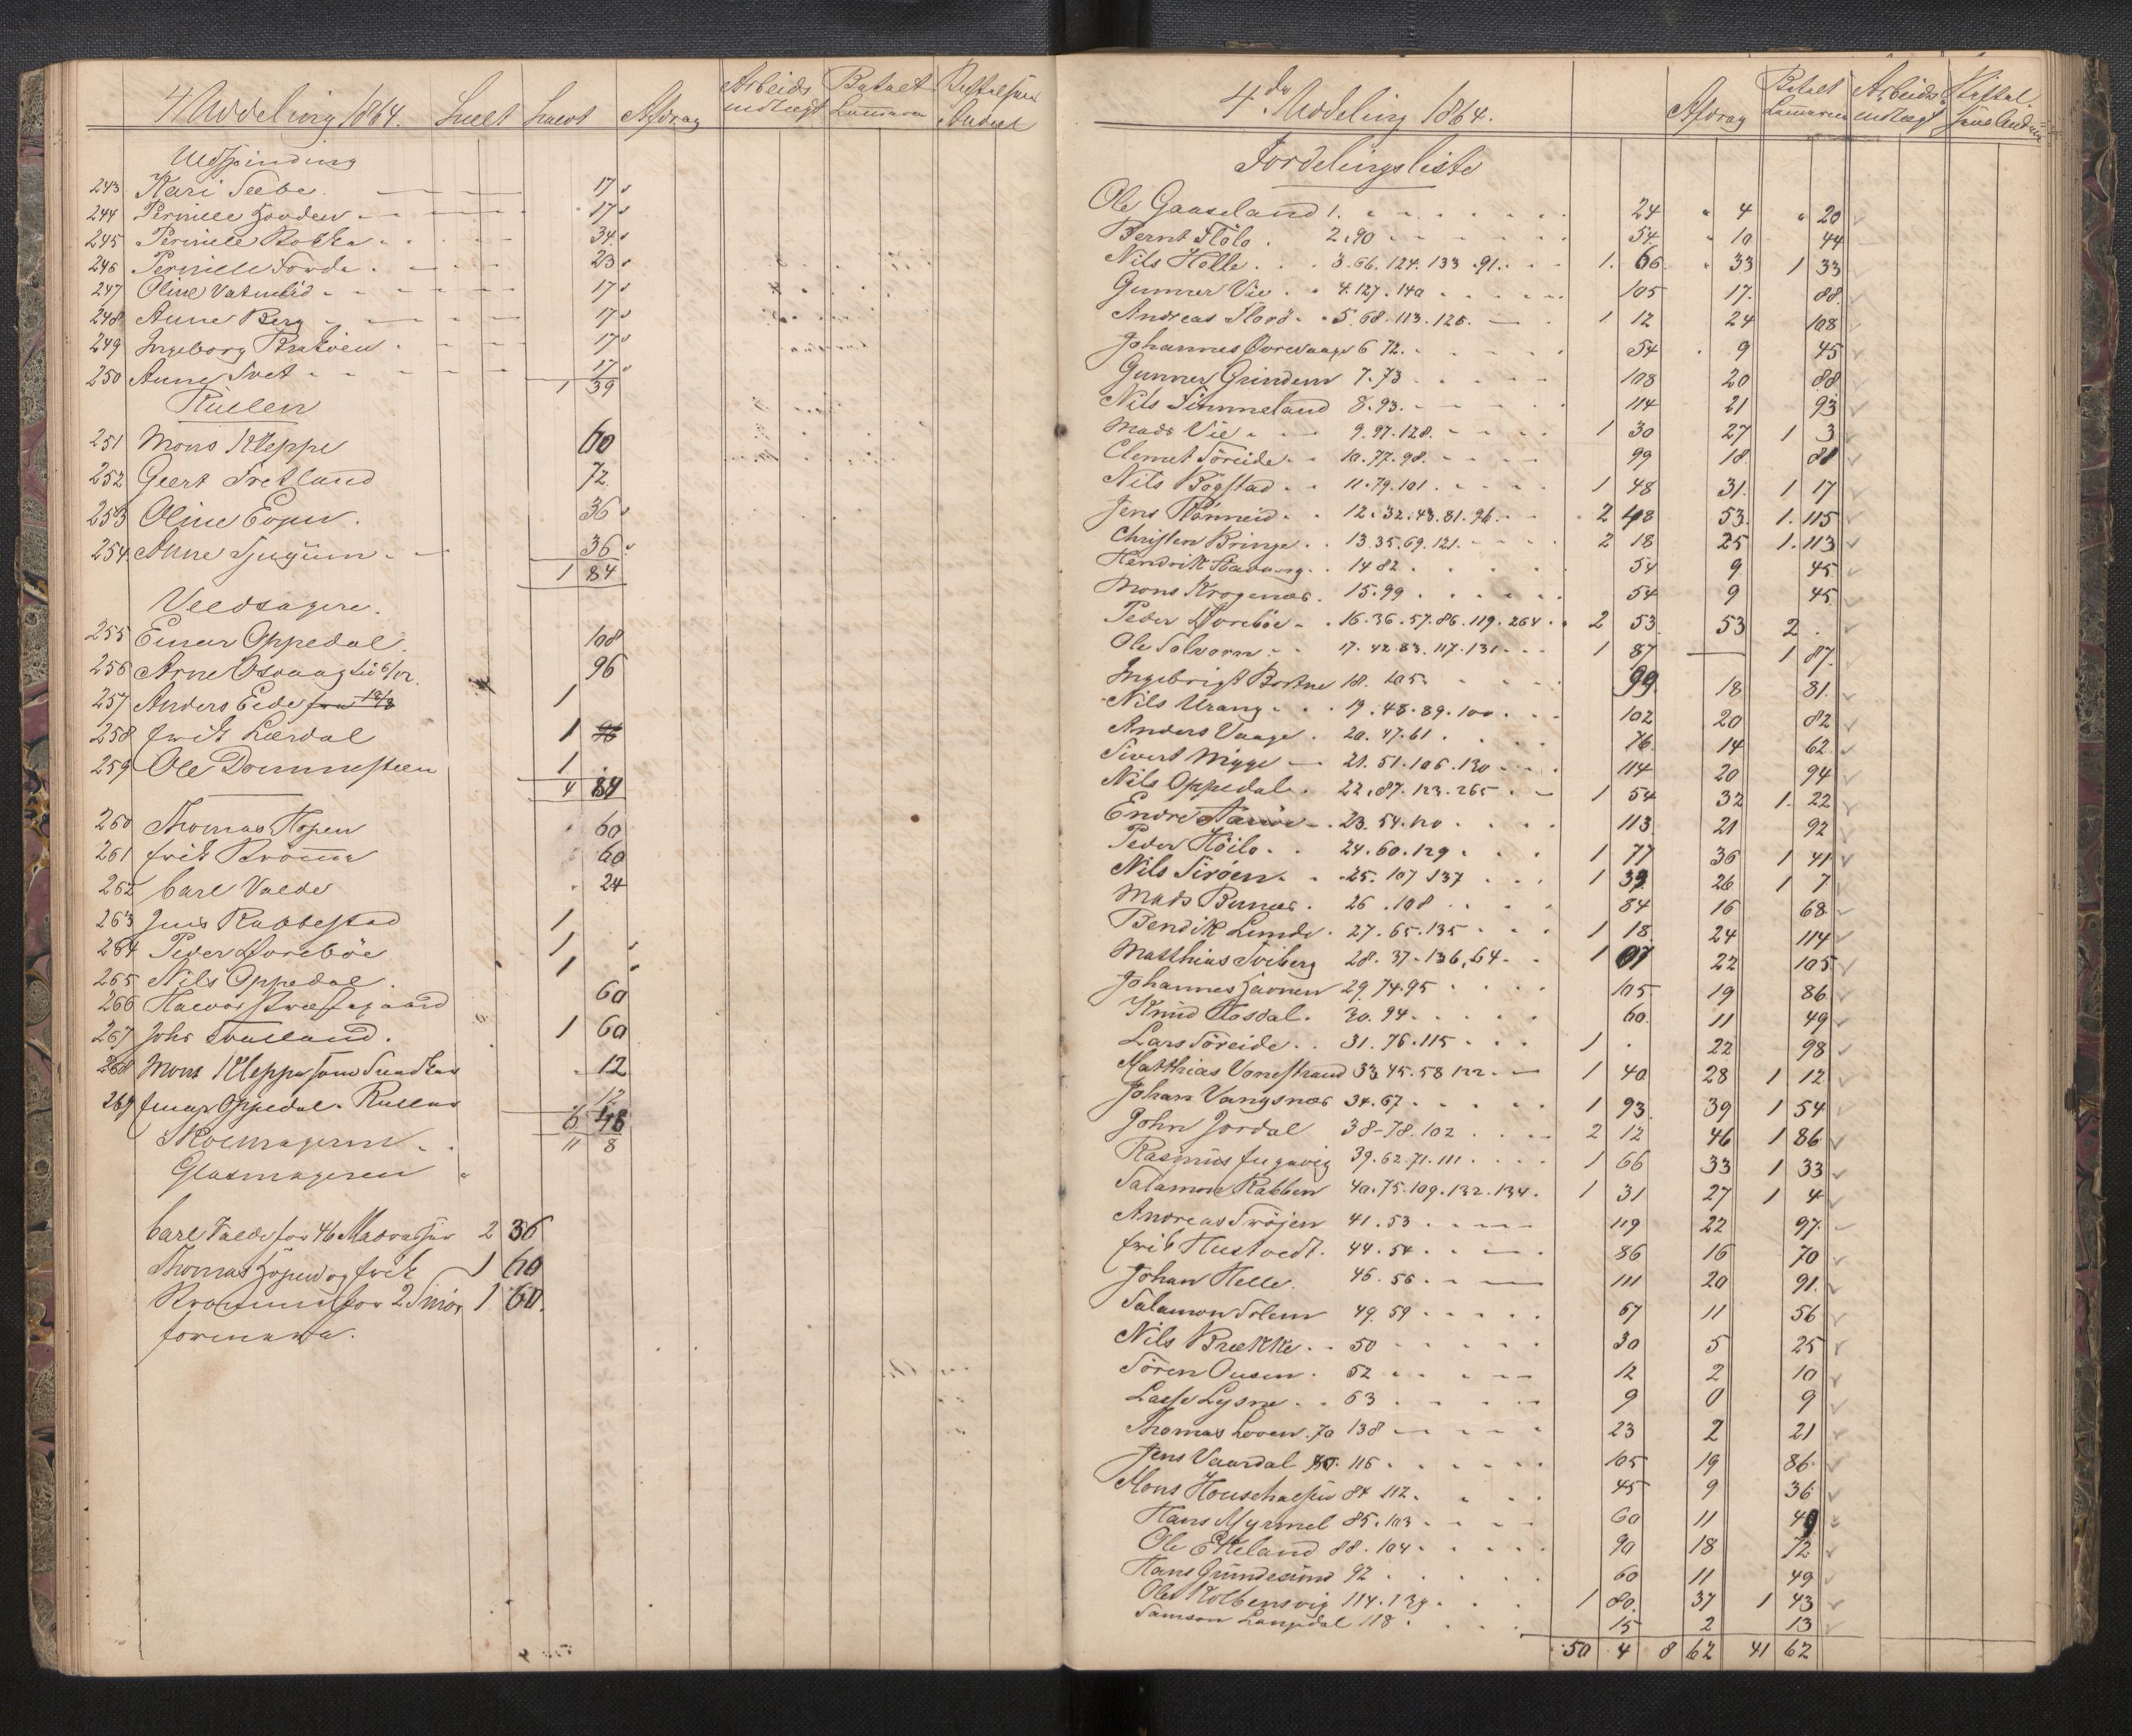 4 Uddeling 1864. Heelt Halvt Afdrag Arbeids indlægt Betalt Lommen
Udspinding
243 Kari Seebe. 17
244 Pernille Hovden 17
245 Pernille 34
246 Pernille Førde 23
247 Oline Vatnelid 17
248 Anne Berg 17
249 Ingeborg 17
250 Anne Tvet 17
1 39
251 Mons Kleppe 60
252 Geert Fretland 72
253 Oline Eopen. 36
254 Anne Njugum 36
1 84
Veedsagere.
255 Einar Oppedal. 108
256 Arne Osvaag til 6/12. 96
257 Anders Eide fra 18/3 1
258 Erik Lærdal 1 96
259 Ole Drummesteen 1
4 84
260 Thomas Hopen 60
261 Erik 60
262 Carl Valde 24
263 Jens Rabbestad 1
264 Peder Dorebøe 1
265 Nils Oppedal. 1
266 60
267 Johs 1 60
268 Mons Kleppe som 12
269 Einar Oppedal. 12
6 48
Skoemageren 11 8
Glasmageren "
Carl Valde for 46 Madrasser 2 36
Thomas Hopen og Erik 1 60
for 2 Smør 1 60.
formene.
4de Uddeling 1864. Afdrag Betalt Lommen Arbeids indlægt
Fordelingsliste
Ole Gaaseland 1. 24 " 4 " 20
Bernt Flølo. 2.90 54 10 44
Nils Holle. 3.66.124.133.91. 1. 66 33 1 33
Gunner Vie. 4.127.140 105 17 88
Andreas Flord. 5.68.113.125. 1 12 24 108
Johannes 6 72. 54 9 45
Gunner Grindem 7.73 108 20 88
Nils Timmeland 8.93. 114 21 93
Mads Vie. 9.97.128. 1 30 27 1 3
Clemet Søreide 10.77.98. 99 18 81
Nils Bøgstad 11.79.101. 1 48 31 1 17
Jens 12.32.43.81.96. 2 48 53 1.115
Christen Bringe. 13.35.69.121. 2 18 25 1.113
Hendrik 14 82 54 9 45
Mons Krogenæs. 15.99 54 9 45
Peder Dorebøe 16.36.57.86.119.264. 2 53 53 2
Ole Solvorn. 17.42.83.117.131 1 87 — 1 87
Ingebrigt 18. 105. 99 18 81.
Nils Urang. 19.48.89.100 102 20 82
Anders Vaage. 20.47.61. 76 14 62
Sivert Mygge 21.51.106.130 114 20 94
Nils Oppedal. 22.87.123.265. 1 54 32 1. 22
Endre 23.54.110 113 21 92
Peder Høilo. 24.60.129 1 77 36 1 41
Nils Sirøen. 25.107 137 1 39 26 1 7
Mads 26.108 84 16 68
Bendik Lunde. 27.65.135 1 18 24 114
Matthias Sviberg 28.37.136,64. 1 07 22 105
Johannes 29.74.95 105 19 86
Knud Hosdal. 30.94 60. 11 49
Lars Søreide. 31.76.115 1 . 22 98
Matthias Vonestrand 33.45.58 122. 1 40 28 1 12
Johan Vangsnæs 34.67. 1 93 39 1 54
John Jordal 38-78.102 2 12 46 1 86
Rasmus 39.62.71.111. 1 66 33 1 33
Salamon Rabben 40.75.109.132.134. 1 31 27 1 4
Andreas Frøjen 41.53 119 22 97
Erik Hustvedt. 44.54. 86 16 70
Johan Helle. 46.56. 111 20 91.
Salamon Solem 49.59 67 11 56
Nils Brække. 50 30 5 25
Søren Ousen. 52 12 2 10
Lasse Lysne. 63 9 0 9
Thomas Loven. 70 138 23 2 21
Jens Vaardal 80. 116 105 19 86
Mons 84 112. 45 9 36
Hans Myrmel 85.103 60 11 49
Ole Ekeland 88.104 90 18 72
Hans 92 60 11 49
Ole Kolbensvig 114.139. 1 80. 37 1 43
Samson Langedal 118. 15 2 13
50 4 8 62 41 62